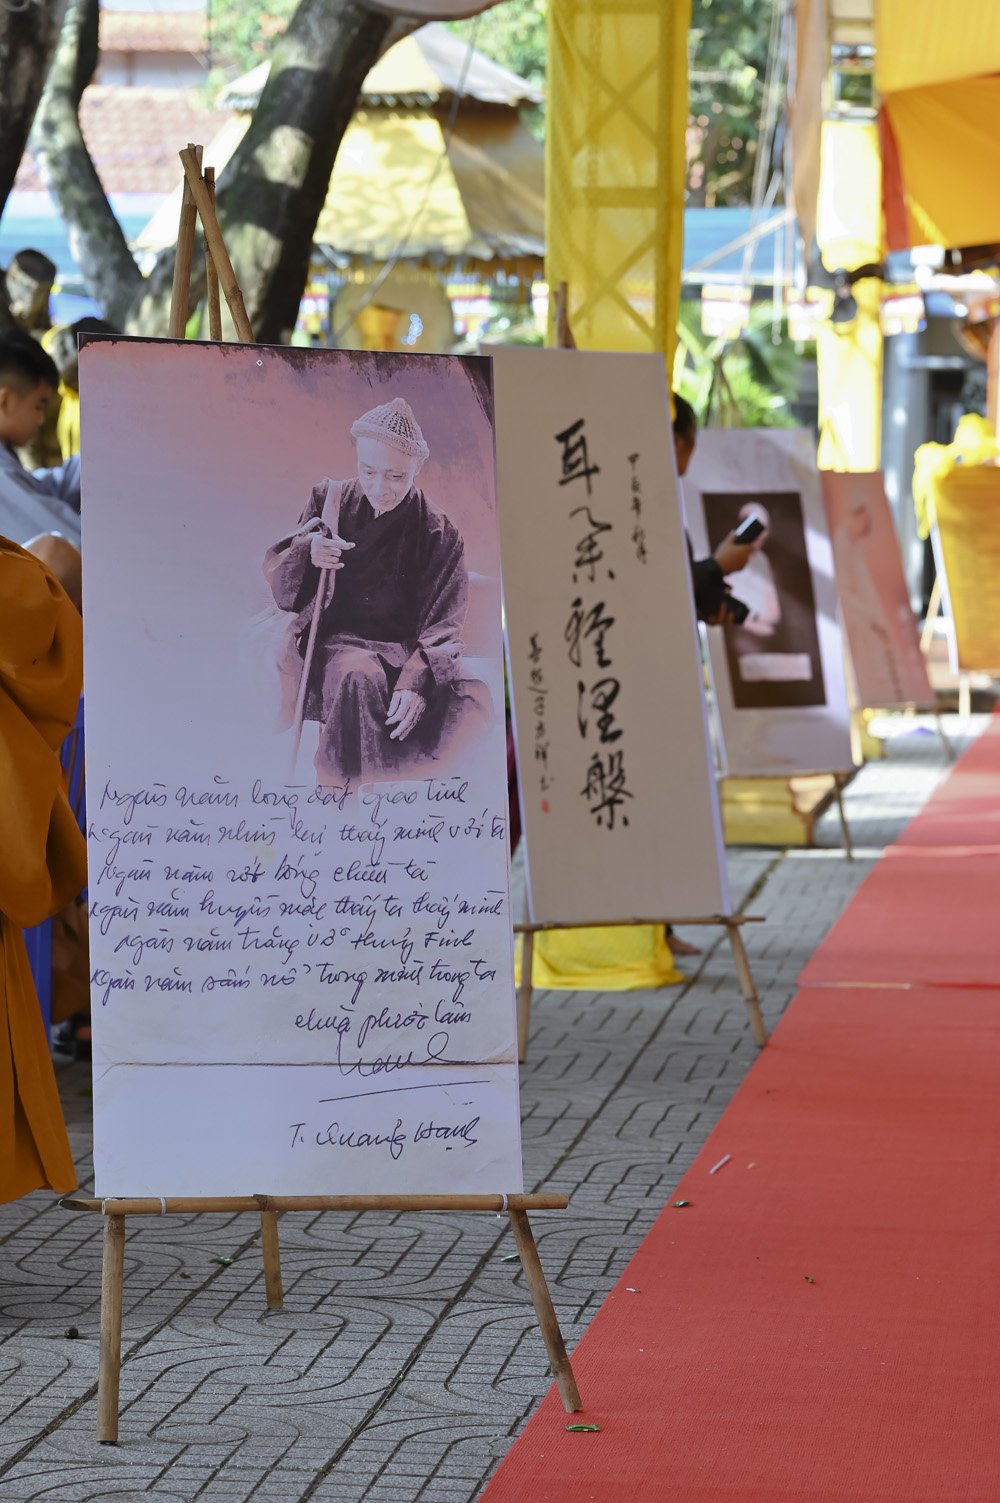 Ngàn năm lòng đất giao tình
Ngàn năm nhìn lại thấy mình với ta
Ngàn năm rớt bóng chiều tà
Ngàn năm huyễn thấy ta thấy mình
Ngàn năm trăng vỡ thủy tinh
Ngàn năm sấm nổ trong mình trong ta
chùa phước lâm
T. Quang Hạnh
甲辰年
耳朵涅槃